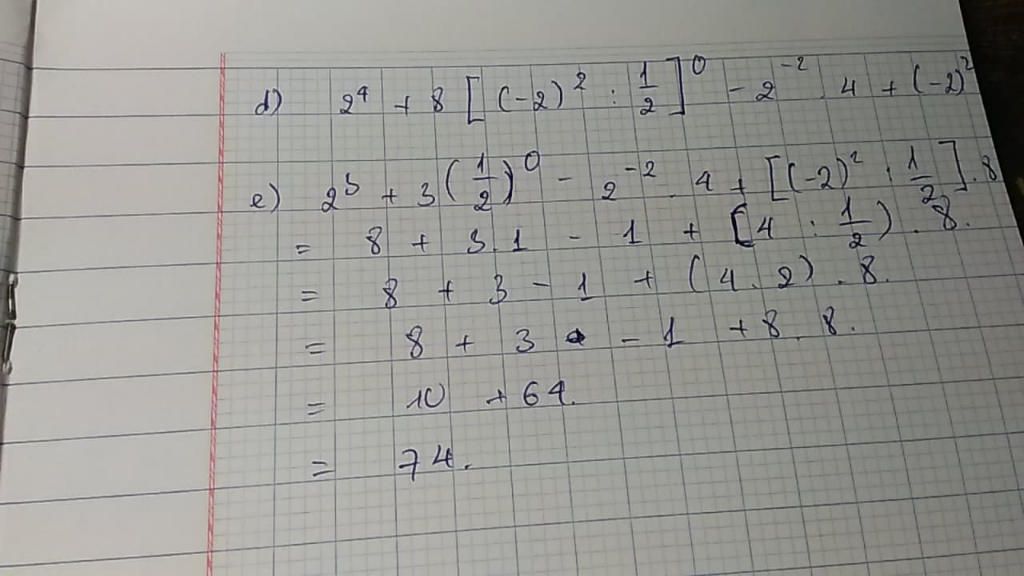 d) 2⁴ + 8 [(-2)² : 1/2]⁰ - 2⁻² . 4 + (-2)²
e) 2³ + 3 (1/2)⁰ - 2⁻² . 4 + [(-2)² : 1/2] . 8
= 8 + 3.1 - 1 + [4 : 1/2) . 8.
= 8 + 3 - 1 + (4 . 2) . 8.
= 8 + 3 - 1 + 8 . 8.
= 10 + 64.
= 74.